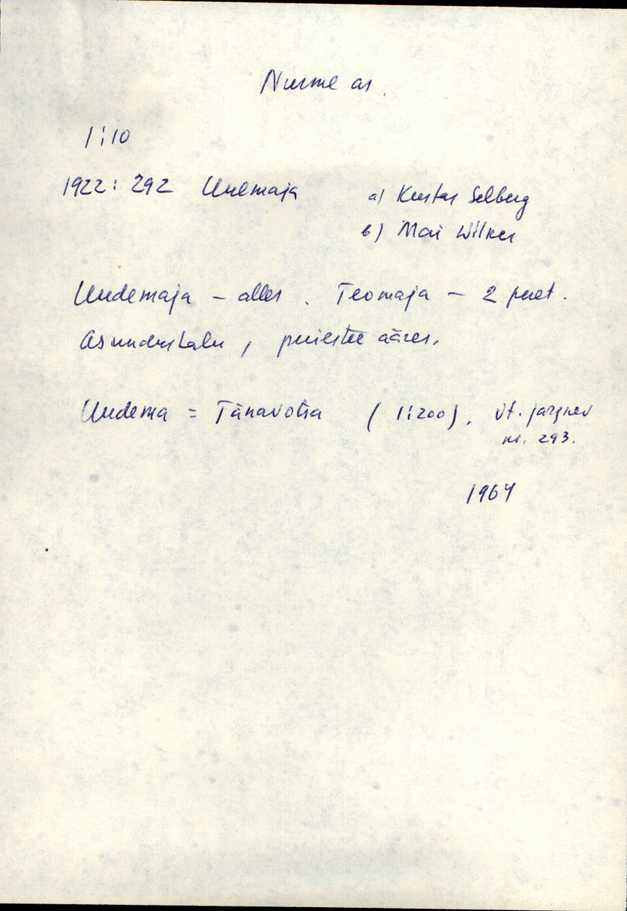 Nurme as.
1:10
1922: 292 Uuemaja a) Kustas Selberg
b) Mari Wilner
Uudemaja – alles. Teomaja – 2 peret.
Asundustalu, puiestee ääres.
Uudema = Tänavotsa (1:200). Vt. järgnev
nr. 293.
1964